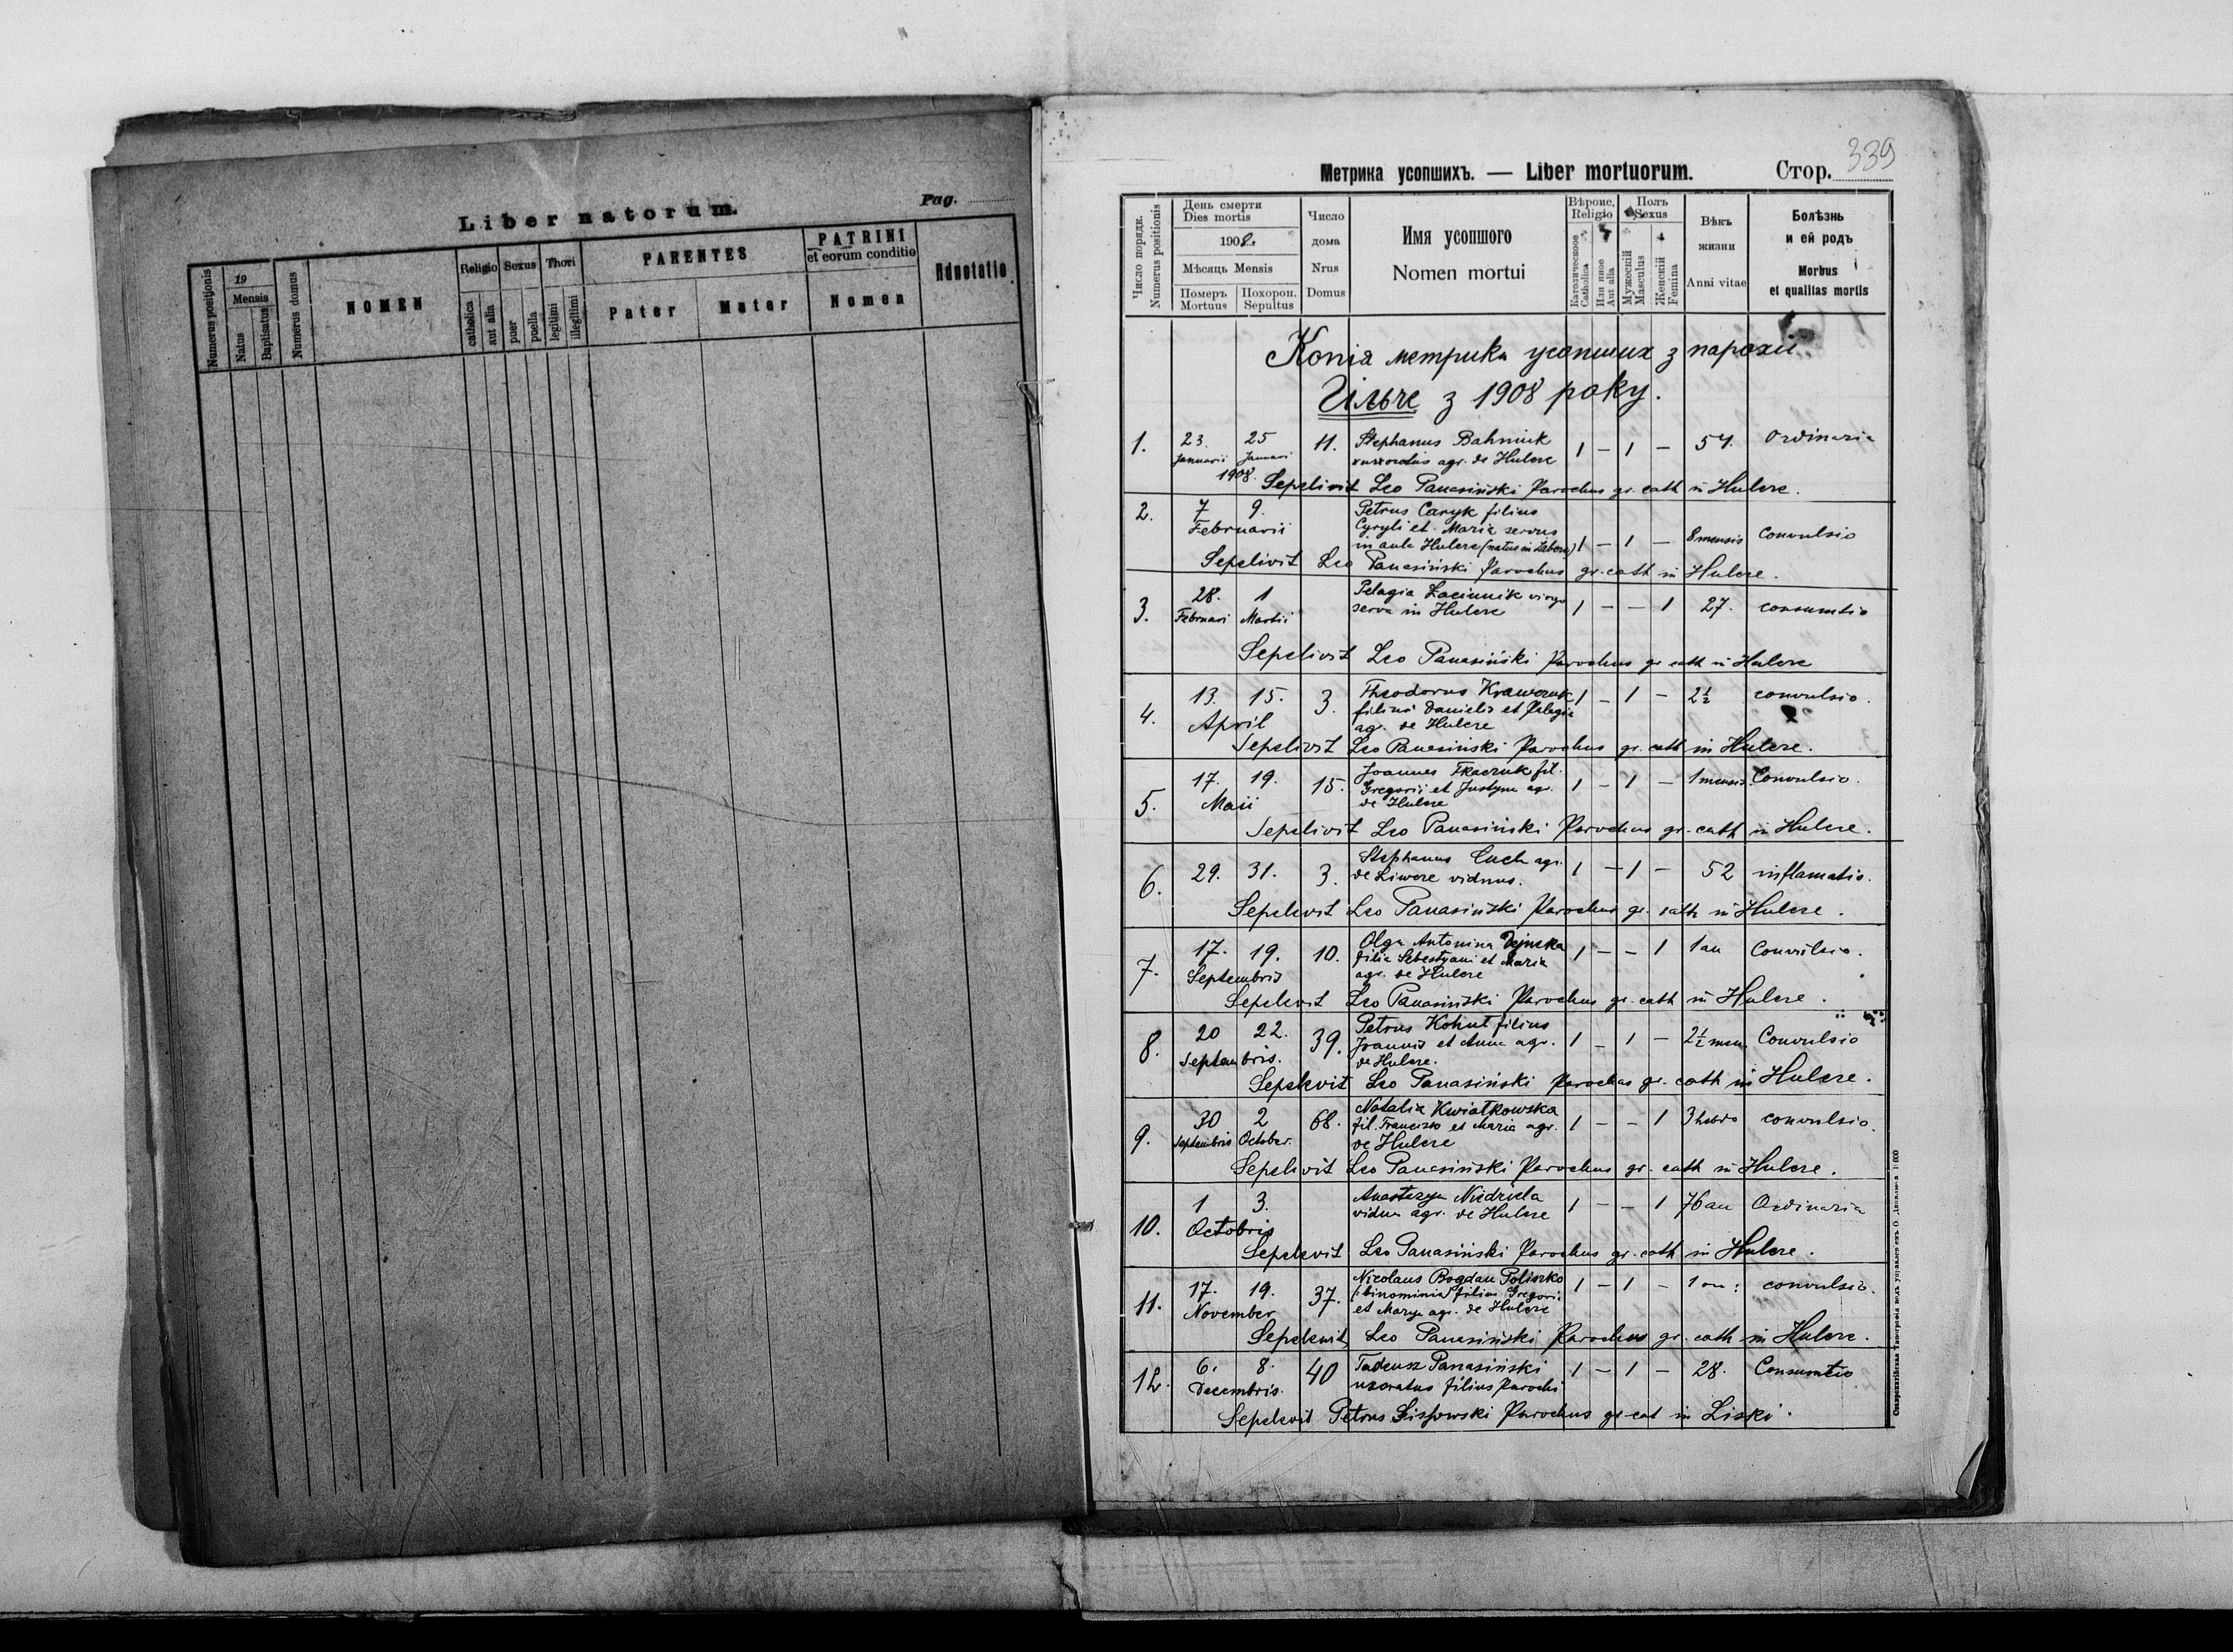 Liber natorum.
Pag.
Numerus positionis
19
Mensis
Natus
Baptisatus
Numerus domus
NOMEN
Religio
catholica
aut alia
Sexus
puer
puella
Thori
legitimi
illegitimi
PARENTES
Pater
Mater
PATRINI
et eorum conditio
Nomen
Adnotatio
339
Метрика усопшихъ. — Liber mortuorum.
Стор.
Число порядк.
Numerus positionis
День смерти
Dies mortis
1908
Мѣсяць Mensis
Померъ
Mortuus
Похорон.
Sepultus
Число
дома
Nrus
Domus
Имя усопшого
Nomen mortui
Вѣроис.
Religio
Католическое
Catholica
Или иное
Aut alia
Полъ
Sexus
Мужескій
Masculus
Женскій
Femina
Вѣкъ
жизни
Anni vitae
Болѣзнь
и ей родъ
Morbus
et qualitas mortis
Копія метрика усопших з парохии
Гільче з 1908 року.
1. 23. Januarii 25 Januari 1908. 11. Stephanus Bahniuk
agr. de Hulcze 1 – 1 – 57. Ordinaria
Sepelivit Leo Panasiński Parochus gr. cath in Hulcze.
2. 7 9. Februarii Petrus Caryk filius
Cyryli et Maria servus
in aula Hulcze (natus in Zaborze) 1 – 1 – 8 mensis Convulsio
Sepelivit Leo Panasiński Parochus gr. cath in Hulcze.
3. 28. Februari 1 Martii Pelagia Zacinnik virgo
serva in Hulcze 1 – – 1 27. consumtio
Sepelivit Leo Panasiński Parochus gr cath in Hulcze
4. 13. 15. April 3. Theodorus Krawczuk
filius Danielis et Pelagia
agr. de Hulcze 1 – 1 – 2½ convulsio.
Sepelivit Leo Panasiński Parochus gr. cath in Hulcze.
5. 17. 19. Maii 15. Joannes Tkaczuk fil.
Gregorii et Justyna agr.
de Hulcze 1 – 1 – 1 mensis. Convulsio.
Sepelivit Leo Panasiński Parochus gr. cath in Hulcze.
6. 29. 31. 3. Stephanus Cuch agr.
de Liwcze viduus. 1 – 1 – 52 inflamatio.
Sepelevit Leo Panasiński Parochus gr. cath in Hulcze.
7. 17. 19. Septembris 10. Olga Antonina Dejneka
filia Sebestyani et Maria
agr. de Hulcze 1 – – 1 1 an Convulsio.
Sepelevit Leo Panasiński Parochus gr. cath in Hulcze.
8. 20 22. Septembris. 39. Petrus Kohut filius
Joannis et Anna agr.
de Hulcze. 1 – 1 – 2½ men. Convulsio
Sepelevit Leo Panasiński Parochus gr. cath in Hulcze.
9. 30 Septembris 2 October. 68. Natalia Kwiatkowska
fil. Francisco et Maria agr.
de Hulcze 1 – – 1 3 hebdo convulsio.
Sepelivit Leo Panasiński Parochus gr. cath in Hulcze.
10. 1 3. Octobris Anastazya Niedziela
vidua agr. de Hulcze 1 – – 1 76 an Ordinaria
Sepelevit Leo Panasiński Parochus gr. cath in Hulcze.
11. 17. 19. November 37. Nicolaus Bogdan Poliszko
(: binominis) filius Gregorii
et Marya agr. de Hulcze 1 – 1 – 1 an: convulsio.
Sepelevit Leo Panasiński Parochus gr. cath in Hulcze.
12. 6. 8. Decembris. 40 Tadeusz Panasiński
uxoratus filius Parochi 1 – 1 – 28. Consumtio
Sepelevit Petrus Parochus gr cat in Liski.